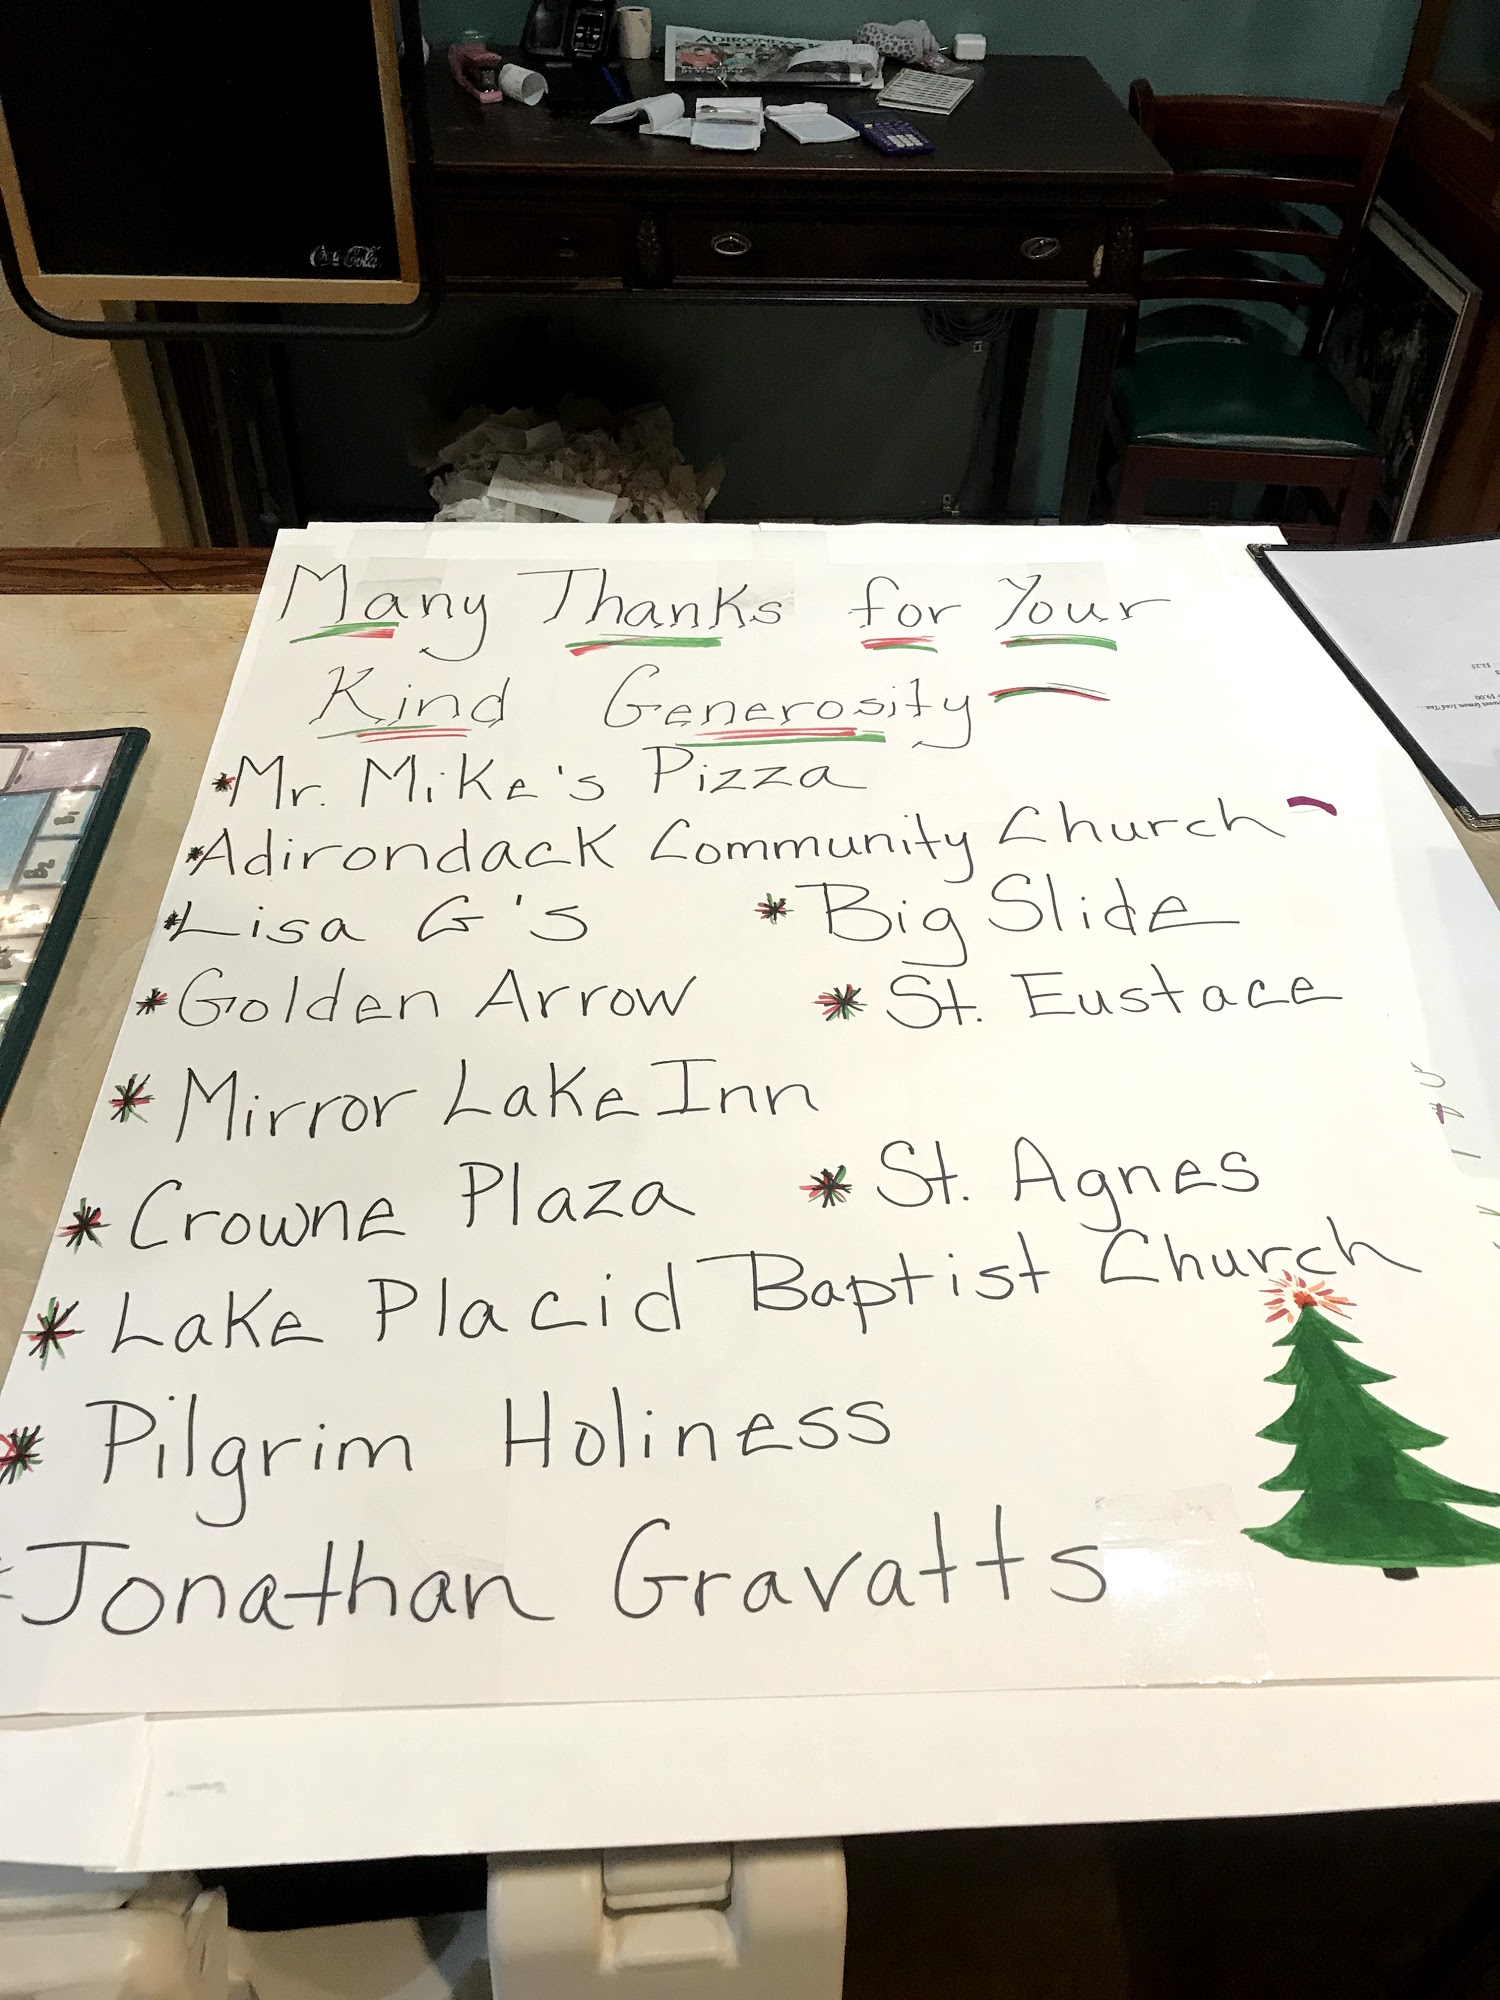 ADIRONDA
Coca-Cola
Many Thanks for Your
Kind Generosity
* Mr. Mike's Pizza
* Adirondack Community Church
* Lisa G's * Big Slide
* Golden Arrow * St. Eustace
* Mirror Lake Inn
* Crowne Plaza * St. Agnes
* Lake Placid Baptist Church
* Pilgrim Holiness
* Jonathan Gravatts